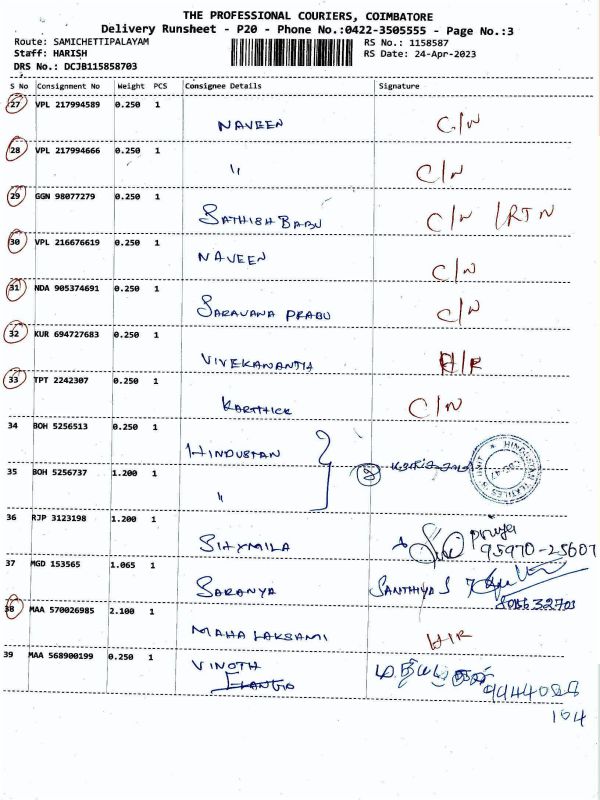 THE PROFESSIONAL COURIERS, COIMBATORE
Delivery Runsheet - P20 - Phone No.:0422-3505555 - Page No.:3
Route: SAMICHETTIPALAYAM RS No.: 1158587
Staff: HARISH RS Date: 24-Apr-2023
DRS No.: DCJB115858703
S No Consignment No Weight PCS Consignee Details Signature
27 VPL 217994589 0.250 1 NAVEEN C/N
28 VPL 217994666 0.250 1 " C/N
29 GGN 98077279 0.250 1 SATHISH BABU C/N /RTN
30 VPL 216676619 0.250 1 NAVEEN C/N
31 NDA 905374691 0.250 1 SARAVANA PRABU C/N
32 KUR 694727683 0.250 1 VIVEKANANTH H/R
33 TPT 2242307 0.250 1 KARTHICK C/N
34 BOH 5256513 0.250 1 HINDUSTAN
35 BOH 5256737 1.200 1 "
36 RJP 3123198 1.200 1 SHYMILA priya
95970-25607
37 MGD 153565 1.065 1 SARANYA SANTHIYA S
38 MAA 570026985 2.100 1 MAHA LAKSAMI H/R
39 MAA 568900199 0.250 1 VINOTH
104